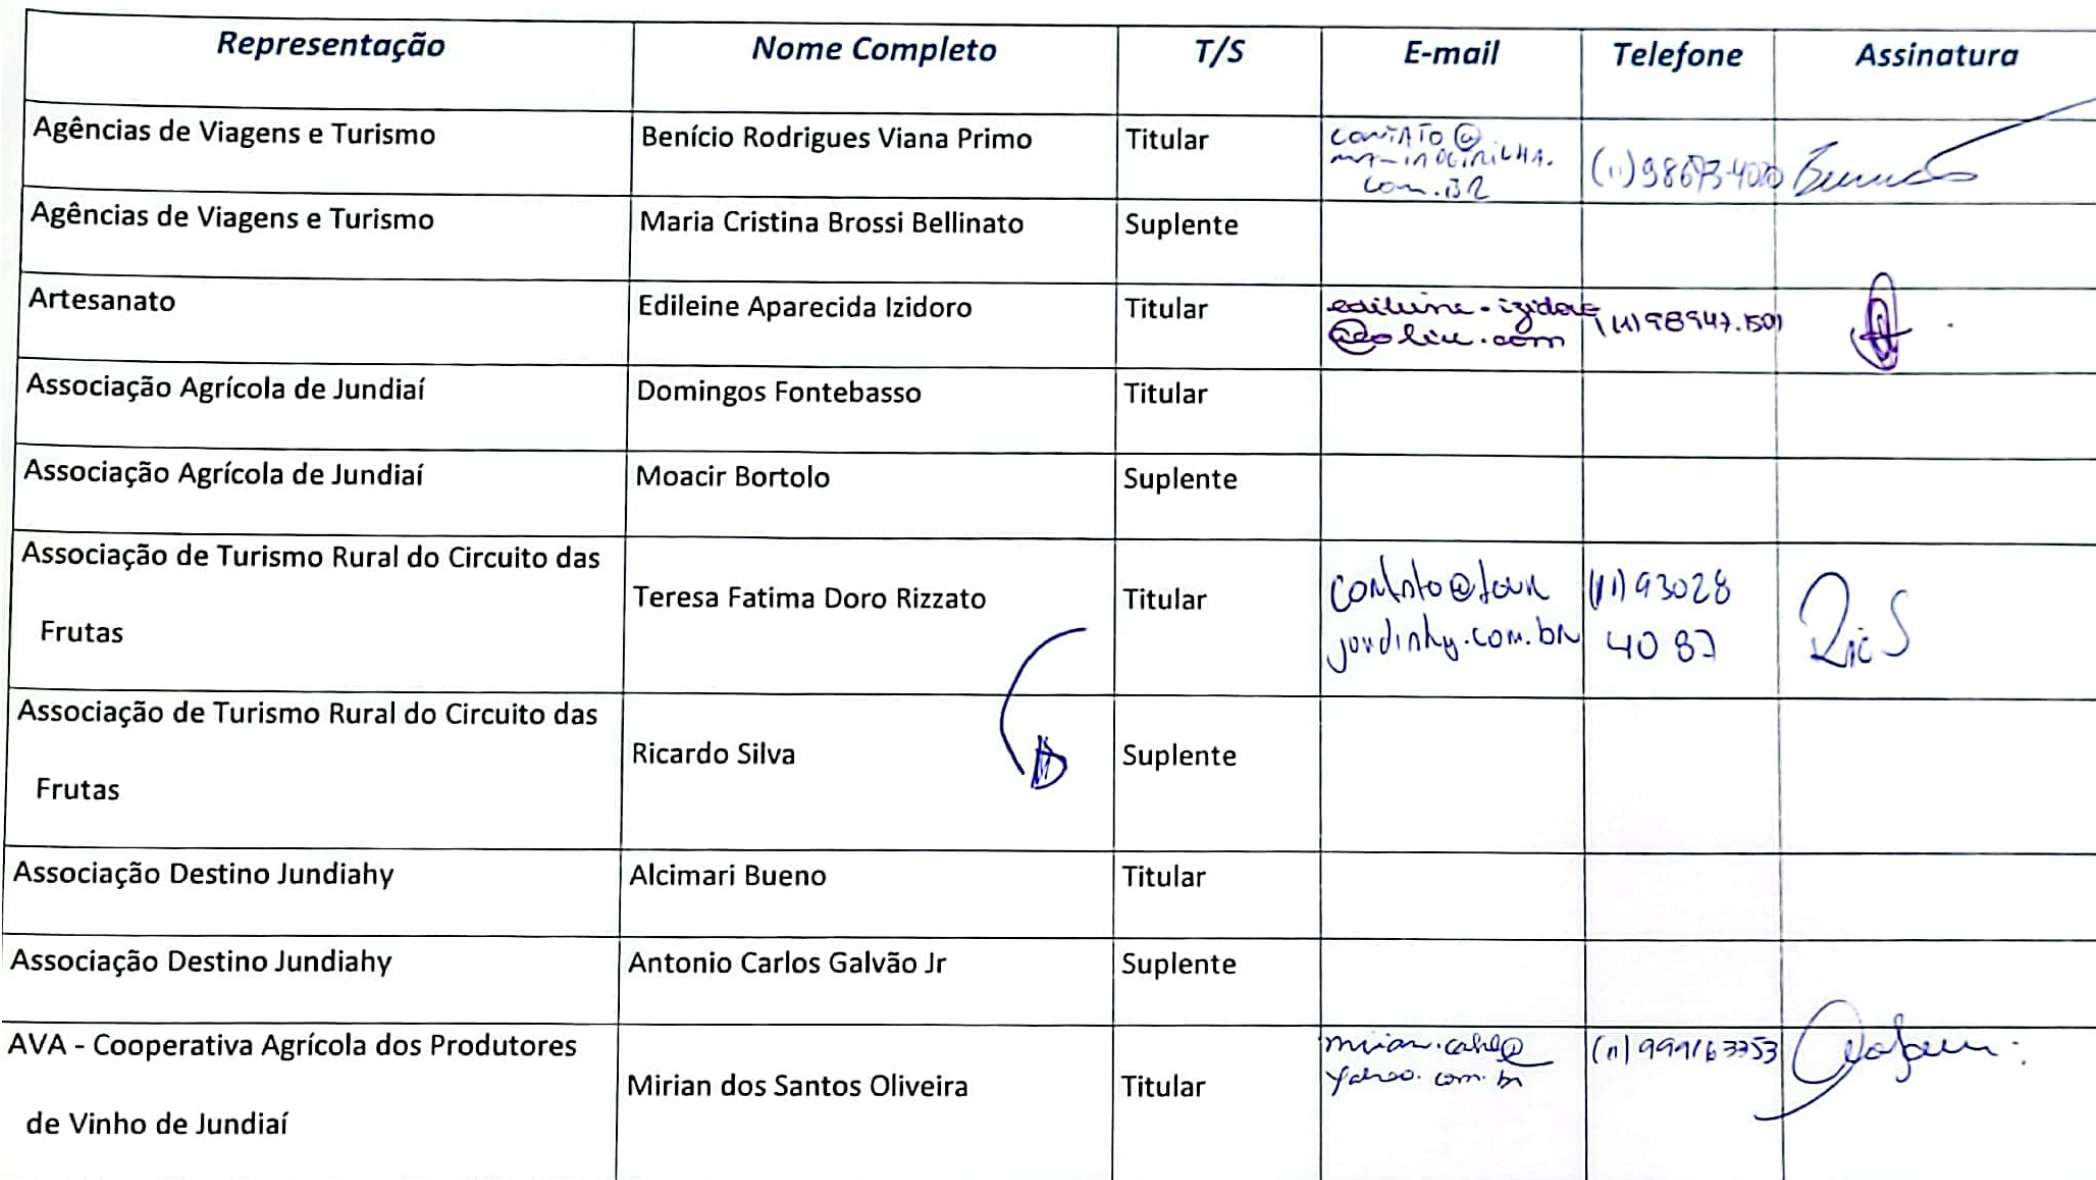 Representação Nome Completo T/S E-mail Telefone Assinatura
Agências de Viagens e Turismo Benício Rodrigues Viana Primo Titular CONTATO@
COM.BR
Agências de Viagens e Turismo Maria Cristina Brossi Bellinato Suplente
Artesanato Edileine Aparecida Izidoro Titular (11) 98947.1501
.com
Associação Agrícola de Jundiaí Domingos Fontebasso Titular
Associação Agrícola de Jundiaí Moacir Bortolo Suplente
Associação de Turismo Rural do Circuito das
Frutas Teresa Fatima Doro Rizzato Titular contato@tour
jundiahy.com.br (11) 93028
4087 RicS
Associação de Turismo Rural do Circuito das
Frutas Ricardo Silva Suplente
Associação Destino Jundiahy Alcimari Bueno Titular
Associação Destino Jundiahy Antonio Carlos Galvão Jr Suplente
AVA - Cooperativa Agrícola dos Produtores
de Vinho de Jundiaí Mirian dos Santos Oliveira Titular
yahoo.com.br (11) 999163753